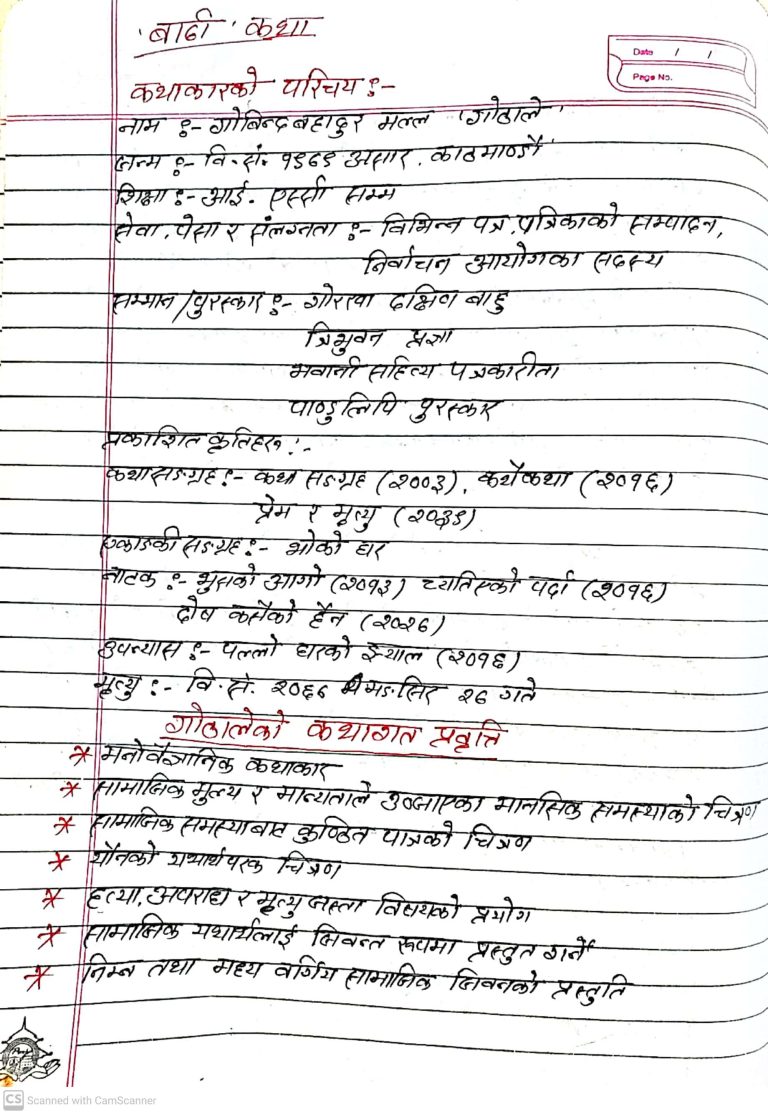 'बार्दा' कथा
Date / /
Page No.
कथाकारको परिचय :-
नाम :- गोबिन्द बहादुर मल्ल 'गोठाले'
जन्म :- वि.सं. १९७९ असार, काठमाण्डौं
शिक्षा :- आई. एस्सी सम्म
सेवा, पेसा र संलग्नता :- विभिन्न पत्र, पत्रिकाको सम्पादन,
निर्वाचन आयोगका सदस्य
सम्मान/पुरस्कार :- गोरखा दक्षिण बाहु
त्रिभुवन प्रज्ञा
भवानी सहित्य पत्रकारीता
पाण्डुलिपि पुरस्कार
प्रकाशित कृतिहरू :-
कथा सङग्रह :- कथा सङग्रह (२००३), कथैकथा (२०१६)
प्रेम र मृत्यु (२०३९)
एकाङकी सङग्रह :- भोको घर
नाटक :- भुसको आगो (२०१३) च्यतिएको पर्दा (२०१६)
दोष कसैको हैन (२०२७)
उपन्यास :- पल्लो घरको झ्याल (२०१६)
मृत्यु :- वि.सं. २०६७ मङसिर २७ गते
गोठालेको कथागत प्रवृत्ति
* मनोवैज्ञानिक कथाकार
* सामाजिक मुल्य र मान्यताले उब्जाएका मानसिक समस्याको चित्रण
* सामाजिक समस्याबाट कुण्ठित पात्रको चित्रण
* यौनको यथार्थपरक चित्रण
* हत्या, अपराध र मृत्यु जस्ता विषयको प्रयोग
* सामाजिक यथार्थलाई जिवन्त रूपमा प्रस्तुत गर्ने
* निम्न तथा मध्य वर्गिय सामाजिक जिवनको प्रस्तुति
CS Scanned with CamScanner